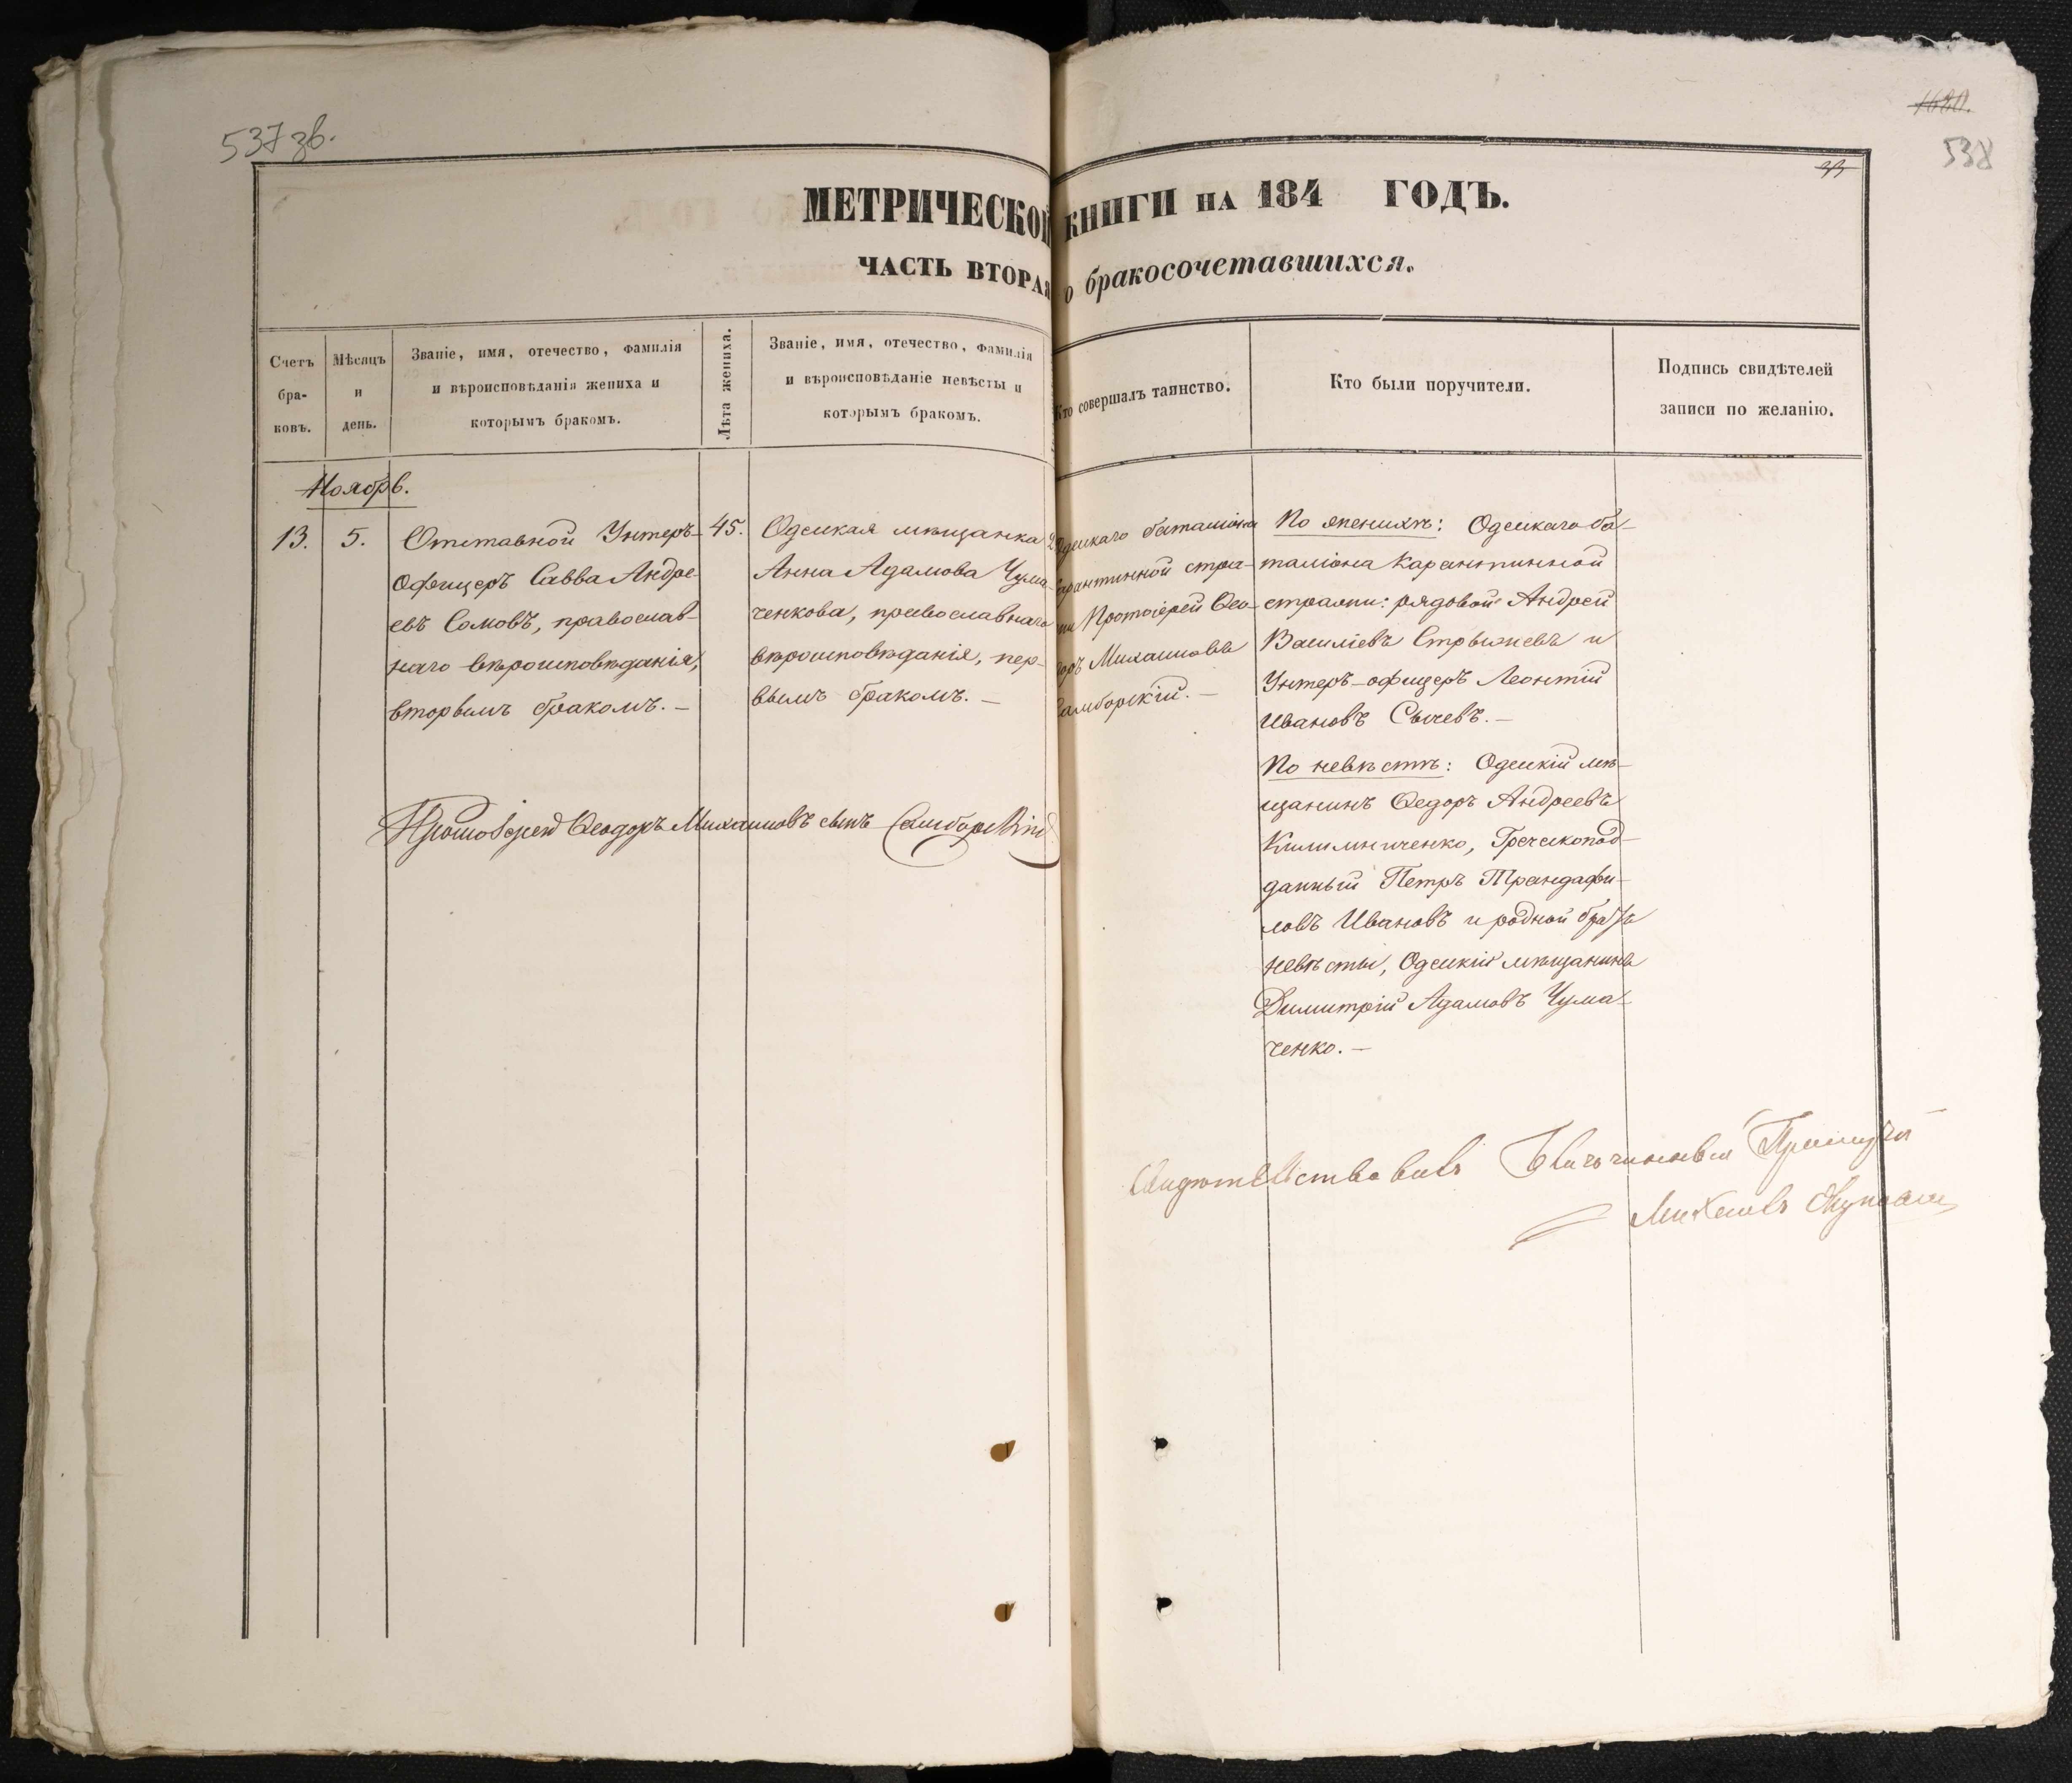 537 зв.
538
МЕТРИЧЕСКОЙ КНИГИ НА 184 ГОДЪ.
ЧАСТЬ ВТОРАЯ о бракосочетавшихся.
Счетъ
бра-
ковъ.
Мѣсяцъ
и
день.
Званіе, имя, отечество, фамилія
и вѣроисповѣданія жениха и
которымъ бракомъ.
Лѣта жениха.
Званіе, имя, отечество, фамилія
и вѣроисповѣданіе невѣсты и
которымъ бракомъ.
Кто совершалъ таинство.
Кто были поручители.
Подпись свидѣтелей
записи по желанію.
Ноябрь.
13.
5.
Отставной Унтеръ-
Офицеръ Савва Андре-
евъ Сомовъ, православ-
наго вѣроисповѣданія,
вторымъ бракомъ. —
45.
Одесская мѣщанка
Анна Адамова Чума-
ченкова, православнаго
вѣроисповѣданія, пер-
вымъ бракомъ. —
Одесскаго баталіона
Карантинной стра-
жи Протоіерей Ѳео-
доръ Михаиловъ
Самборскій. —
По женихѣ: Одесскаго ба-
таліона Карантинной
стражи: рядовой Андрей
Василіевъ Стрыжевъ и
Унтеръ-офицеръ Леонтій
Ивановъ Сычевъ. —
По невѣстѣ: Одесскій мѣ-
щанинъ Ѳедоръ Андреевъ
Килимниченко, Греческопод-
данный Петръ Трандафи-
ловъ Ивановъ и родной братъ
невѣсты, Одесскій мѣщанинъ
Димитрій Адамовъ Чума-
ченко. —
Протоіерей Ѳеодоръ Михаиловъ сынъ Самборскій
Свидѣтельствовалъ Благочинный